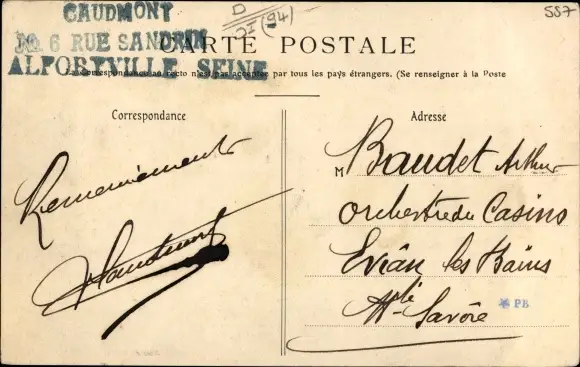 GAUDMONT
No 6 RUE SANDRIN
ALFORTVILLE SEINE
D
21 (94)
557
CARTE POSTALE
La Correspondance au recto n'est pas acceptée par tous les pays étrangers. (Se renseigner à la Poste
Correspondance
Remerciements
Gaudmont
Adresse
M Baudet Arthur
Orchestre du Casino
Evian les Bains
Hte Savoie
PB